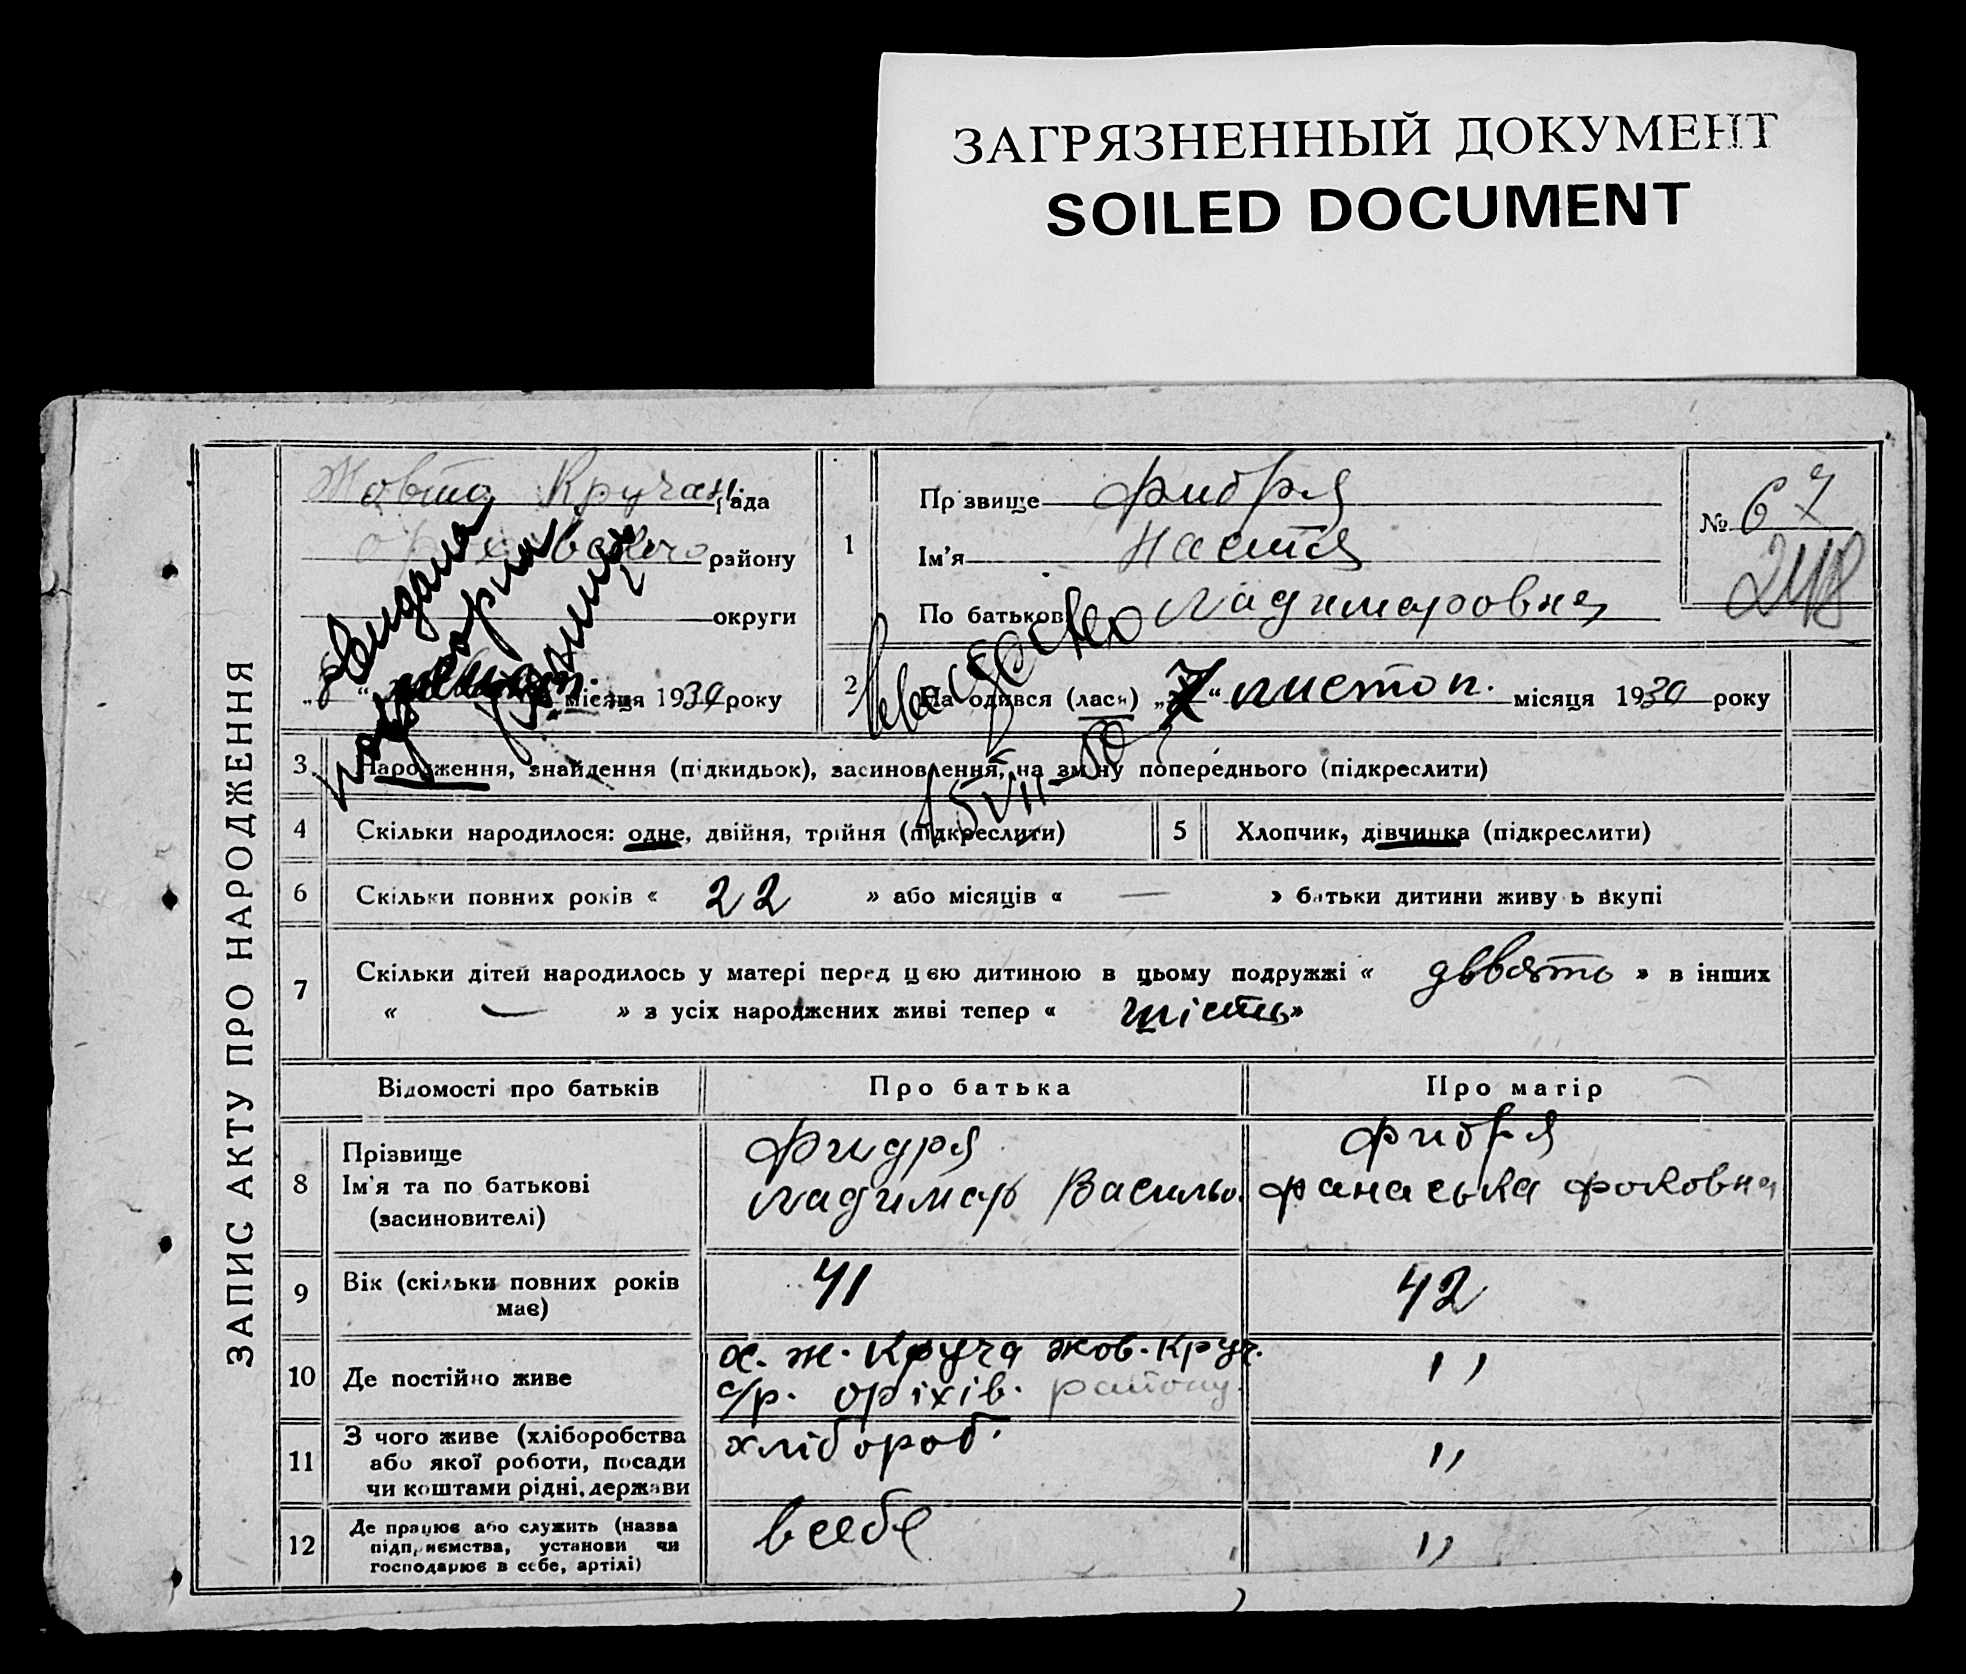 ЗАГРЯЗНЕННЫЙ ДОКУМЕНТ
SOILED DOCUMENT
ЗАПИС АКТУ ПРО НАРОДЖЕННЯ
Жовта Круча рада
району
округи
місяця 1930 року
Видано
повторно
1
Прізвище Фибря
Ім'я Настя
По батькові Ладимаровна
№ 67
248
2 Народився (лась) „7“ листоп. місяця 1930 року
15 VII-50
3 Народження, знайдення (підкидьок), засиновлення, на зміну попереднього (підкреслити)
4 Скільки народилося: одне, двійня, трійня (підкреслити)
5 Хлопчик, дівчинка (підкреслити)
6 Скільки повних років « 22 » або місяців « — » батьки дитини живуть вкупі
7 Скільки дітей народилось у матері перед цією дитиною в цьому подружжі « девять » в інших
« — » з усіх народжених живі тепер « шість »
Відомості про батьків Про батька Про матір
8 Прізвище
Ім'я та по батькові
(засиновителі)
Фидря
Ладимар Васильо.
Фибря
Фанаська Фоковна
9 Вік (скільки повних років
має)
41
42
10 Де постійно живе
х. ж. Круча жов. Круч.
с/р. Оріхів. району.
〃
11 З чого живе (хліборобства
або якої роботи, посади
чи коштами рідні, держави
хлібороб.
〃
12 Де працює або служить (назва
підприємства, установи чи
господарює в себе, артілі)
в себе
〃